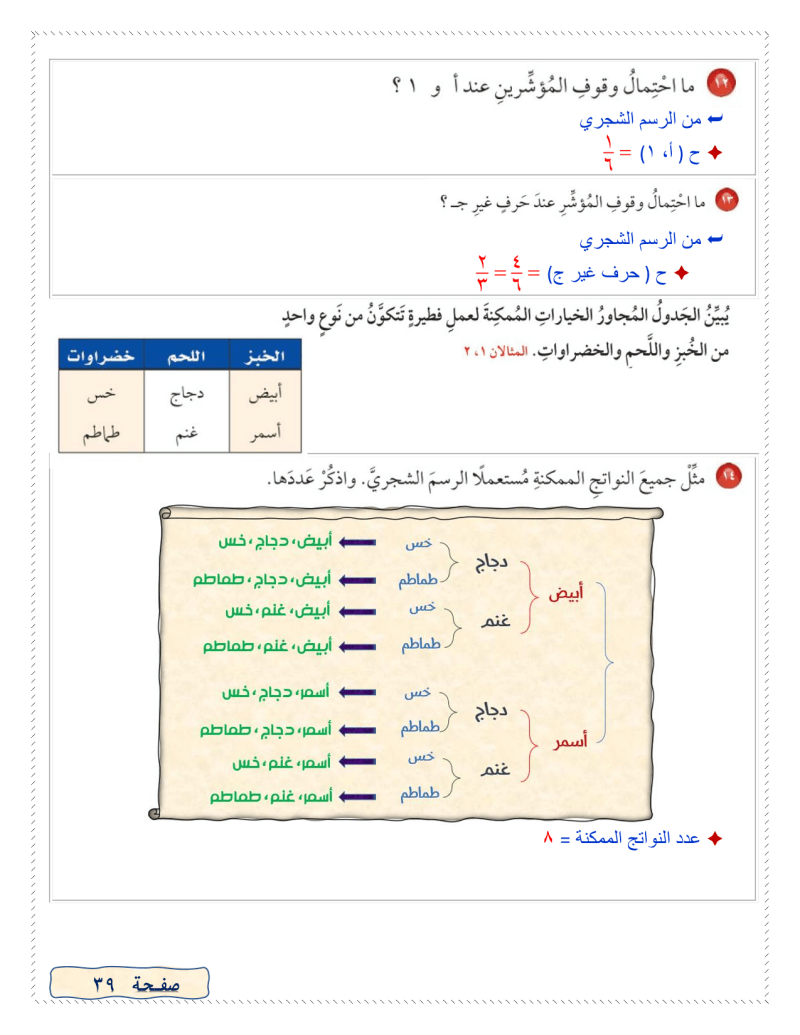 ١٢ ما احْتِمالُ وقوفِ المُؤشِّرينِ عند أ و ١ ؟
من الرسم الشجري
ح ( أ، ١) = ١/٦
١٣ ما احْتِمالُ وقوفِ المُؤشِّرِ عندَ حَرفٍ غيرِ جـ ؟
من الرسم الشجري
ح ( حرف غير ج) = ٤/٦ = ٢/٣
يُبيِّنُ الجَدولُ المُجاورُ الخياراتِ المُمكِنةَ لعملِ فطيرةٍ تَتكوَّنُ من نَوعٍ واحدٍ
من الخُبزِ واللَّحمِ والخضراواتِ. المثالان ١، ٢
الخبز اللحم خضراوات
أبيض دجاج خس
أسمر غنم طماطم
١٤ مثِّلْ جميعَ النواتجِ الممكنةِ مُستعملًا الرسمَ الشجريَّ. واذكُرْ عَددَها.
خس أبيض، دجاج، خس
دجاج
طماطم أبيض، دجاج، طماطم
أبيض
خس أبيض، غنم، خس
غنم
طماطم أبيض، غنم، طماطم
خس أسمر، دجاج، خس
دجاج
طماطم أسمر، دجاج، طماطم
أسمر
خس أسمر، غنم، خس
غنم
طماطم أسمر، غنم، طماطم
عدد النواتج الممكنة = ٨
صفحة ٣٩